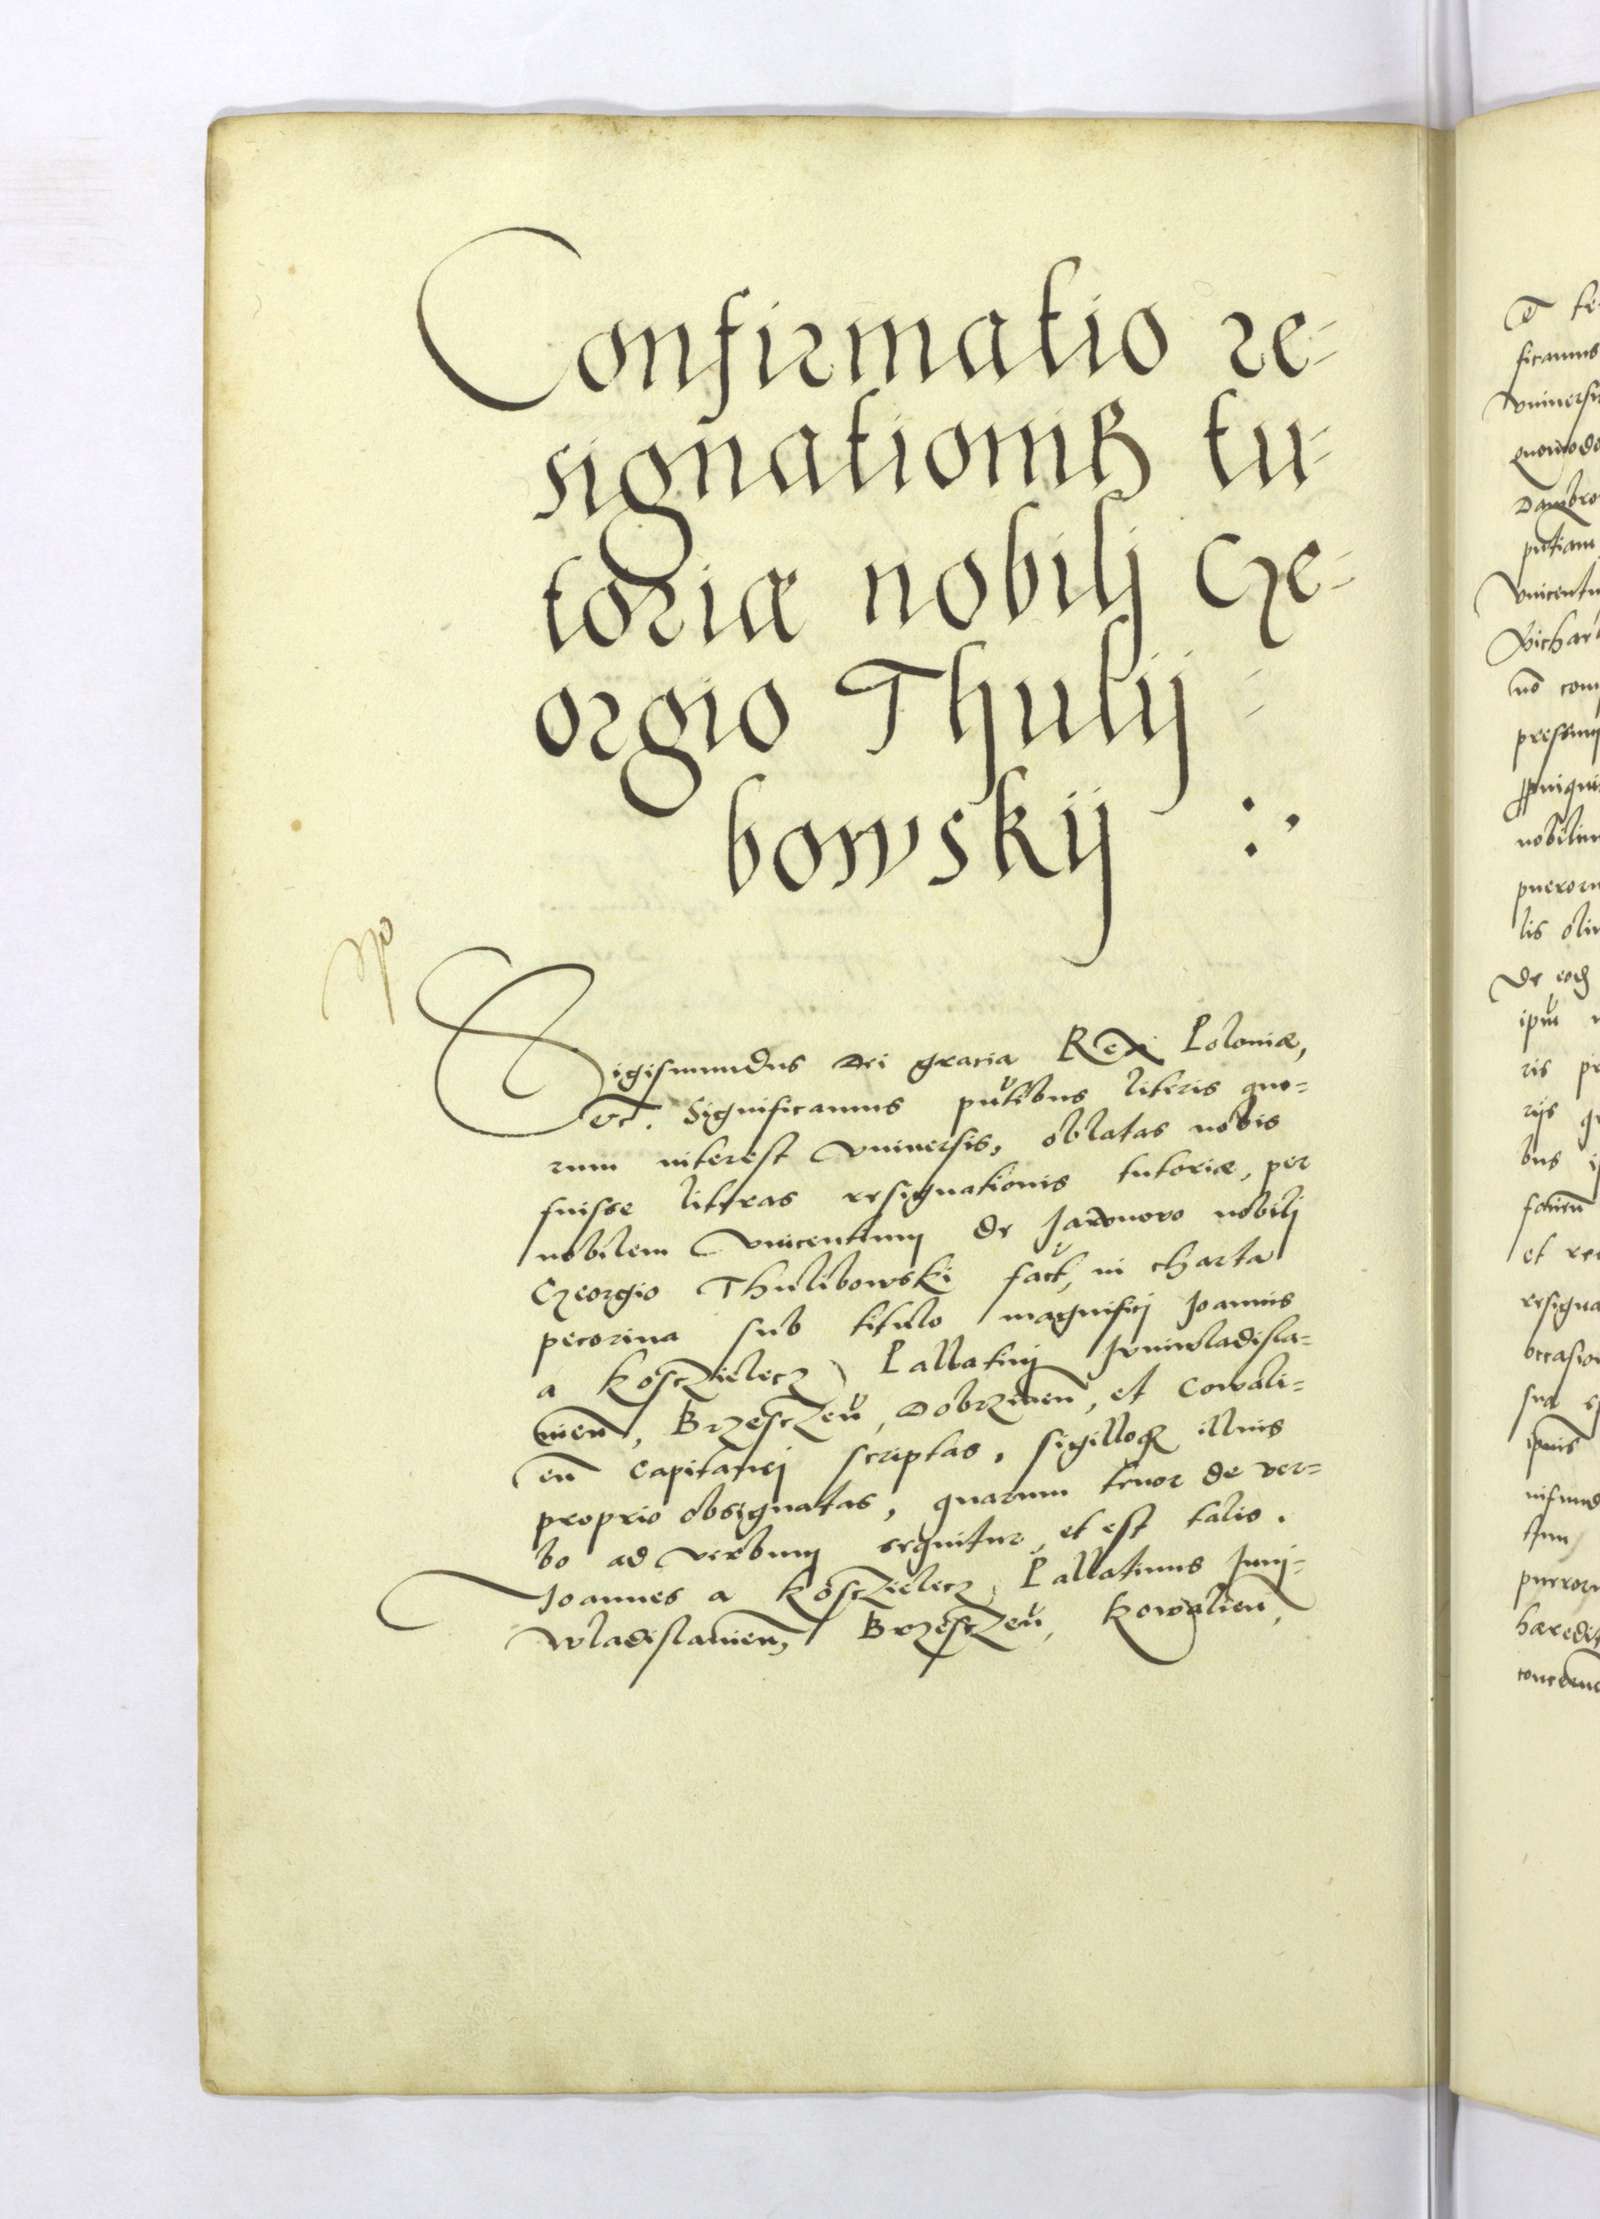 Confirmatio re-
signationis tu-
toriæ nobilj Ge-
orgio Thulij
bowskij
Sigismundus Dei gracia Rex Poloniæ,
etc. Significamus pñtibus literis quo-
rum interest vniversis, oblatas nobis
fuisse literas resignationis tutoriæ, per
nobilem Vincentium de Jaronowo nobilj
Georgio Thulibowski fact, in charta
pecorina sub titulo magnifici Joannis
a Koscżielecz Pallatinj Junivladisla-
vien, Brzesczeń, Dobrzinen, et Cowali-
en Capitanej scriptas, sigilloq illius
proprio obsignatas, quarum tenor de ver-
bo ad verbum sequitur et est talis.
Joannes a Koscżielecz Pallatinus Juni-
wladislavien, Brzesczeń, Kowalien,
ficamus
vniversis
quomodo
pueroru
lis olim
resigna
occasion